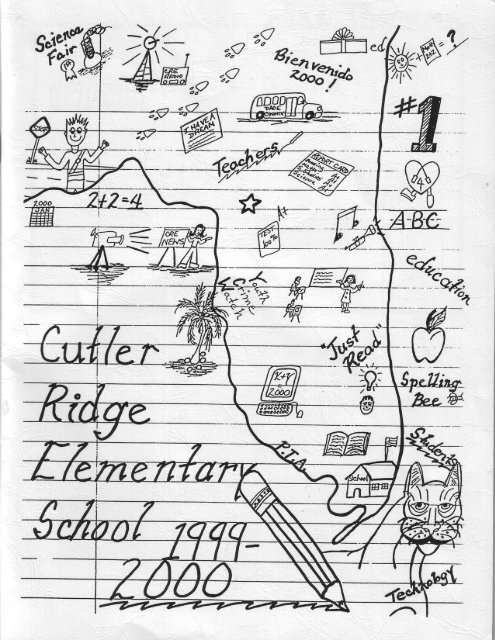 Science
Fair
Bienvenido
2000!
ed
= ?
#1
DADE
COUNTY
CRE
I HAVE A
DREAM
STOP
Teachers
REPORT CARD
2+2=4
2000
JAN
A+
TEST
100%
ABC
CRE
NEWS
education
Youth
Crime
Watch
"Just
Read"
Cutler
Ridge
Elementary
School 1999-
2000
x+y
=
2000
Spelling
Bee
P.T.A.
School
Students
Technology